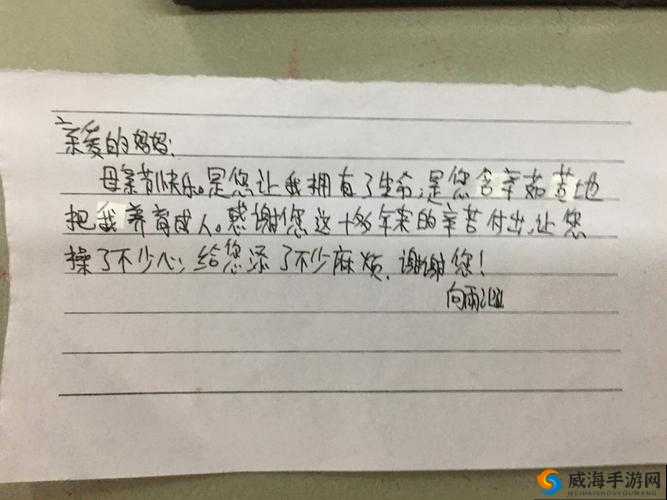 亲爱的妈妈:
母亲节快乐。是您让我拥有了生命,是您含辛茹苦地
把我养育成人。感谢您这十多年来的辛苦付出,让您
操了不少心,给您添了不少麻烦,谢谢您!
向雨
威海手游网
WEIHAISHOUYOUWANG